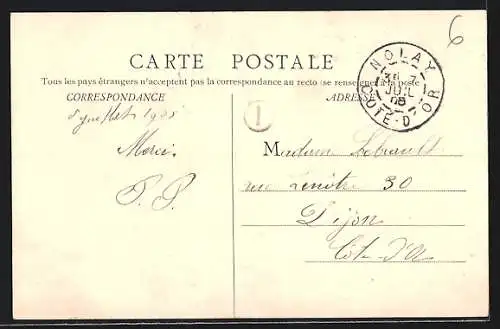 6
CARTE POSTALE
Tous les pays étrangers n'acceptent pas la correspondance au recto (se renseigner à la poste
CORRESPONDANCE
ADRESSE
NOLAY
JUIL
08
COTE-D'OR
juillet 1908
I
Merci
Madame
P. P.
rue 30
Dijon
Côte d'Or